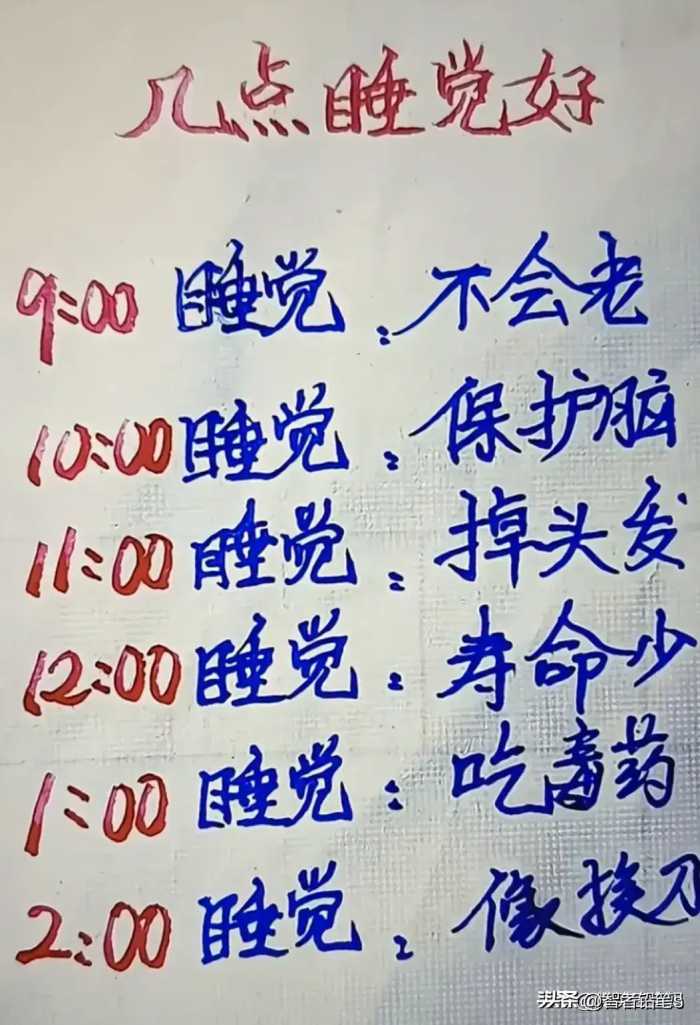 几点睡觉好
9:00 睡觉：不会老
10:00 睡觉：保护脑
11:00 睡觉：掉头发
12:00 睡觉：寿命少
1:00 睡觉：吃毒药
2:00 睡觉：像挨刀
头条 @智者铅笔